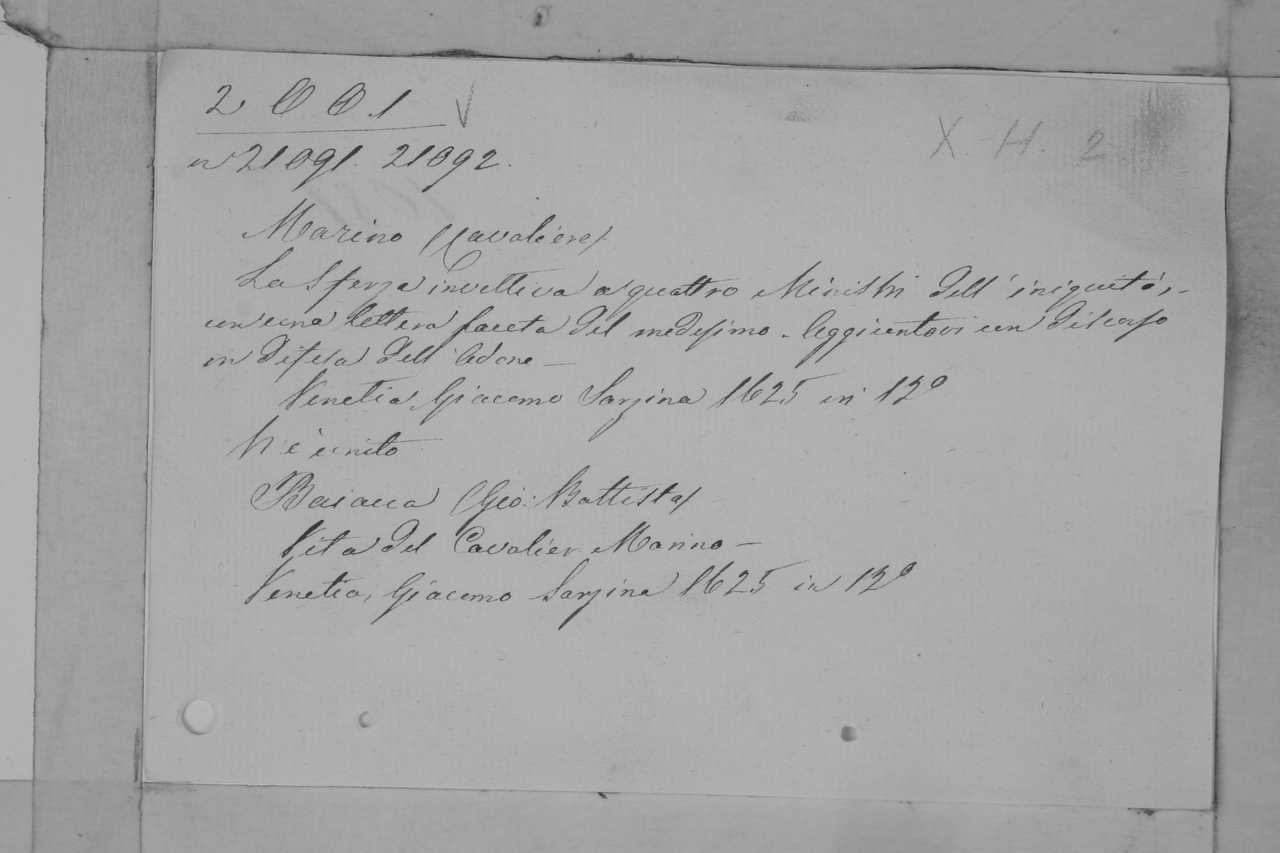 2 O O .1
n 21091. 21092.
X. H. 2
Marino (Cavaliere)
La Sferza invettiva a quattro Ministri dell' iniquità,
con una lettera faceta del medesimo. Aggiuntovi un discorso
in difesa dell' Adone —
Venetia Giacomo Sarzina 1625 in 12º
V' è unito
Baiacca (Gio: Battista)
Vita del Cavalier Marino —
Venetia, Giacomo Sarzina 1625 in 12º